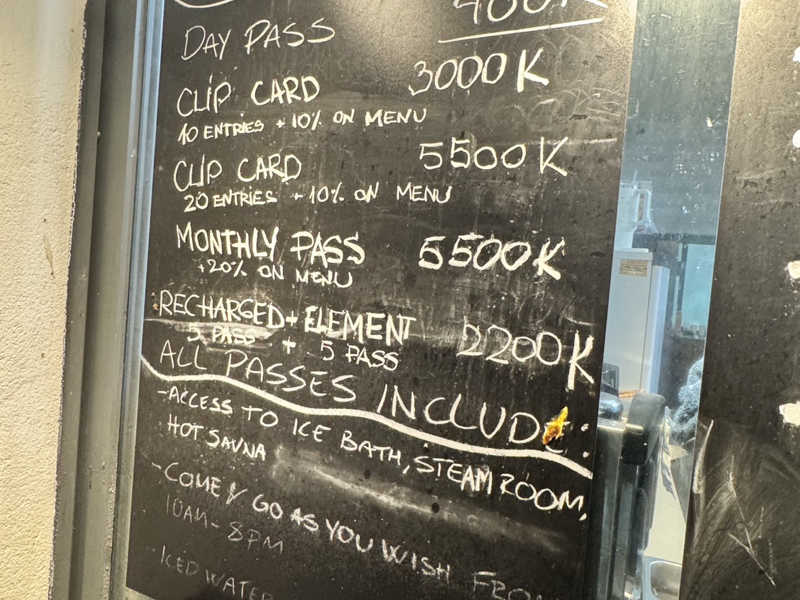 DAY PASS 400K
CLIP CARD 3000K
10 ENTRIES + 10% ON MENU
CLIP CARD 5500K
20 ENTRIES + 10% ON MENU
MONTHLY PASS 5500K
+20% ON MENU
RECHARGED + ELEMENT 2200K
5 PASS + 5 PASS
ALL PASSES INCLUDE:
- ACCESS TO ICE BATH, STEAM ROOM,
HOT SAUNA
- COME & GO AS YOU WISH FROM
10AM - 8PM
- ICED WATER